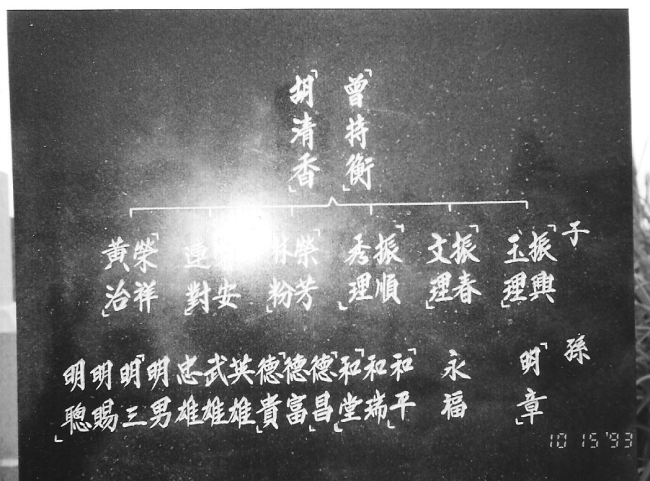 曾持衡
胡清香
子
振興
玉理
振春
文理
振順
秀理
榮芳
林粉
安
連對
榮祥
黃治
孫
明章
永福
和平
和瑞
和堂
德昌
德富
德貴
英雄
武雄
忠雄
明男
明三
明賜
明聰
10 15 '93